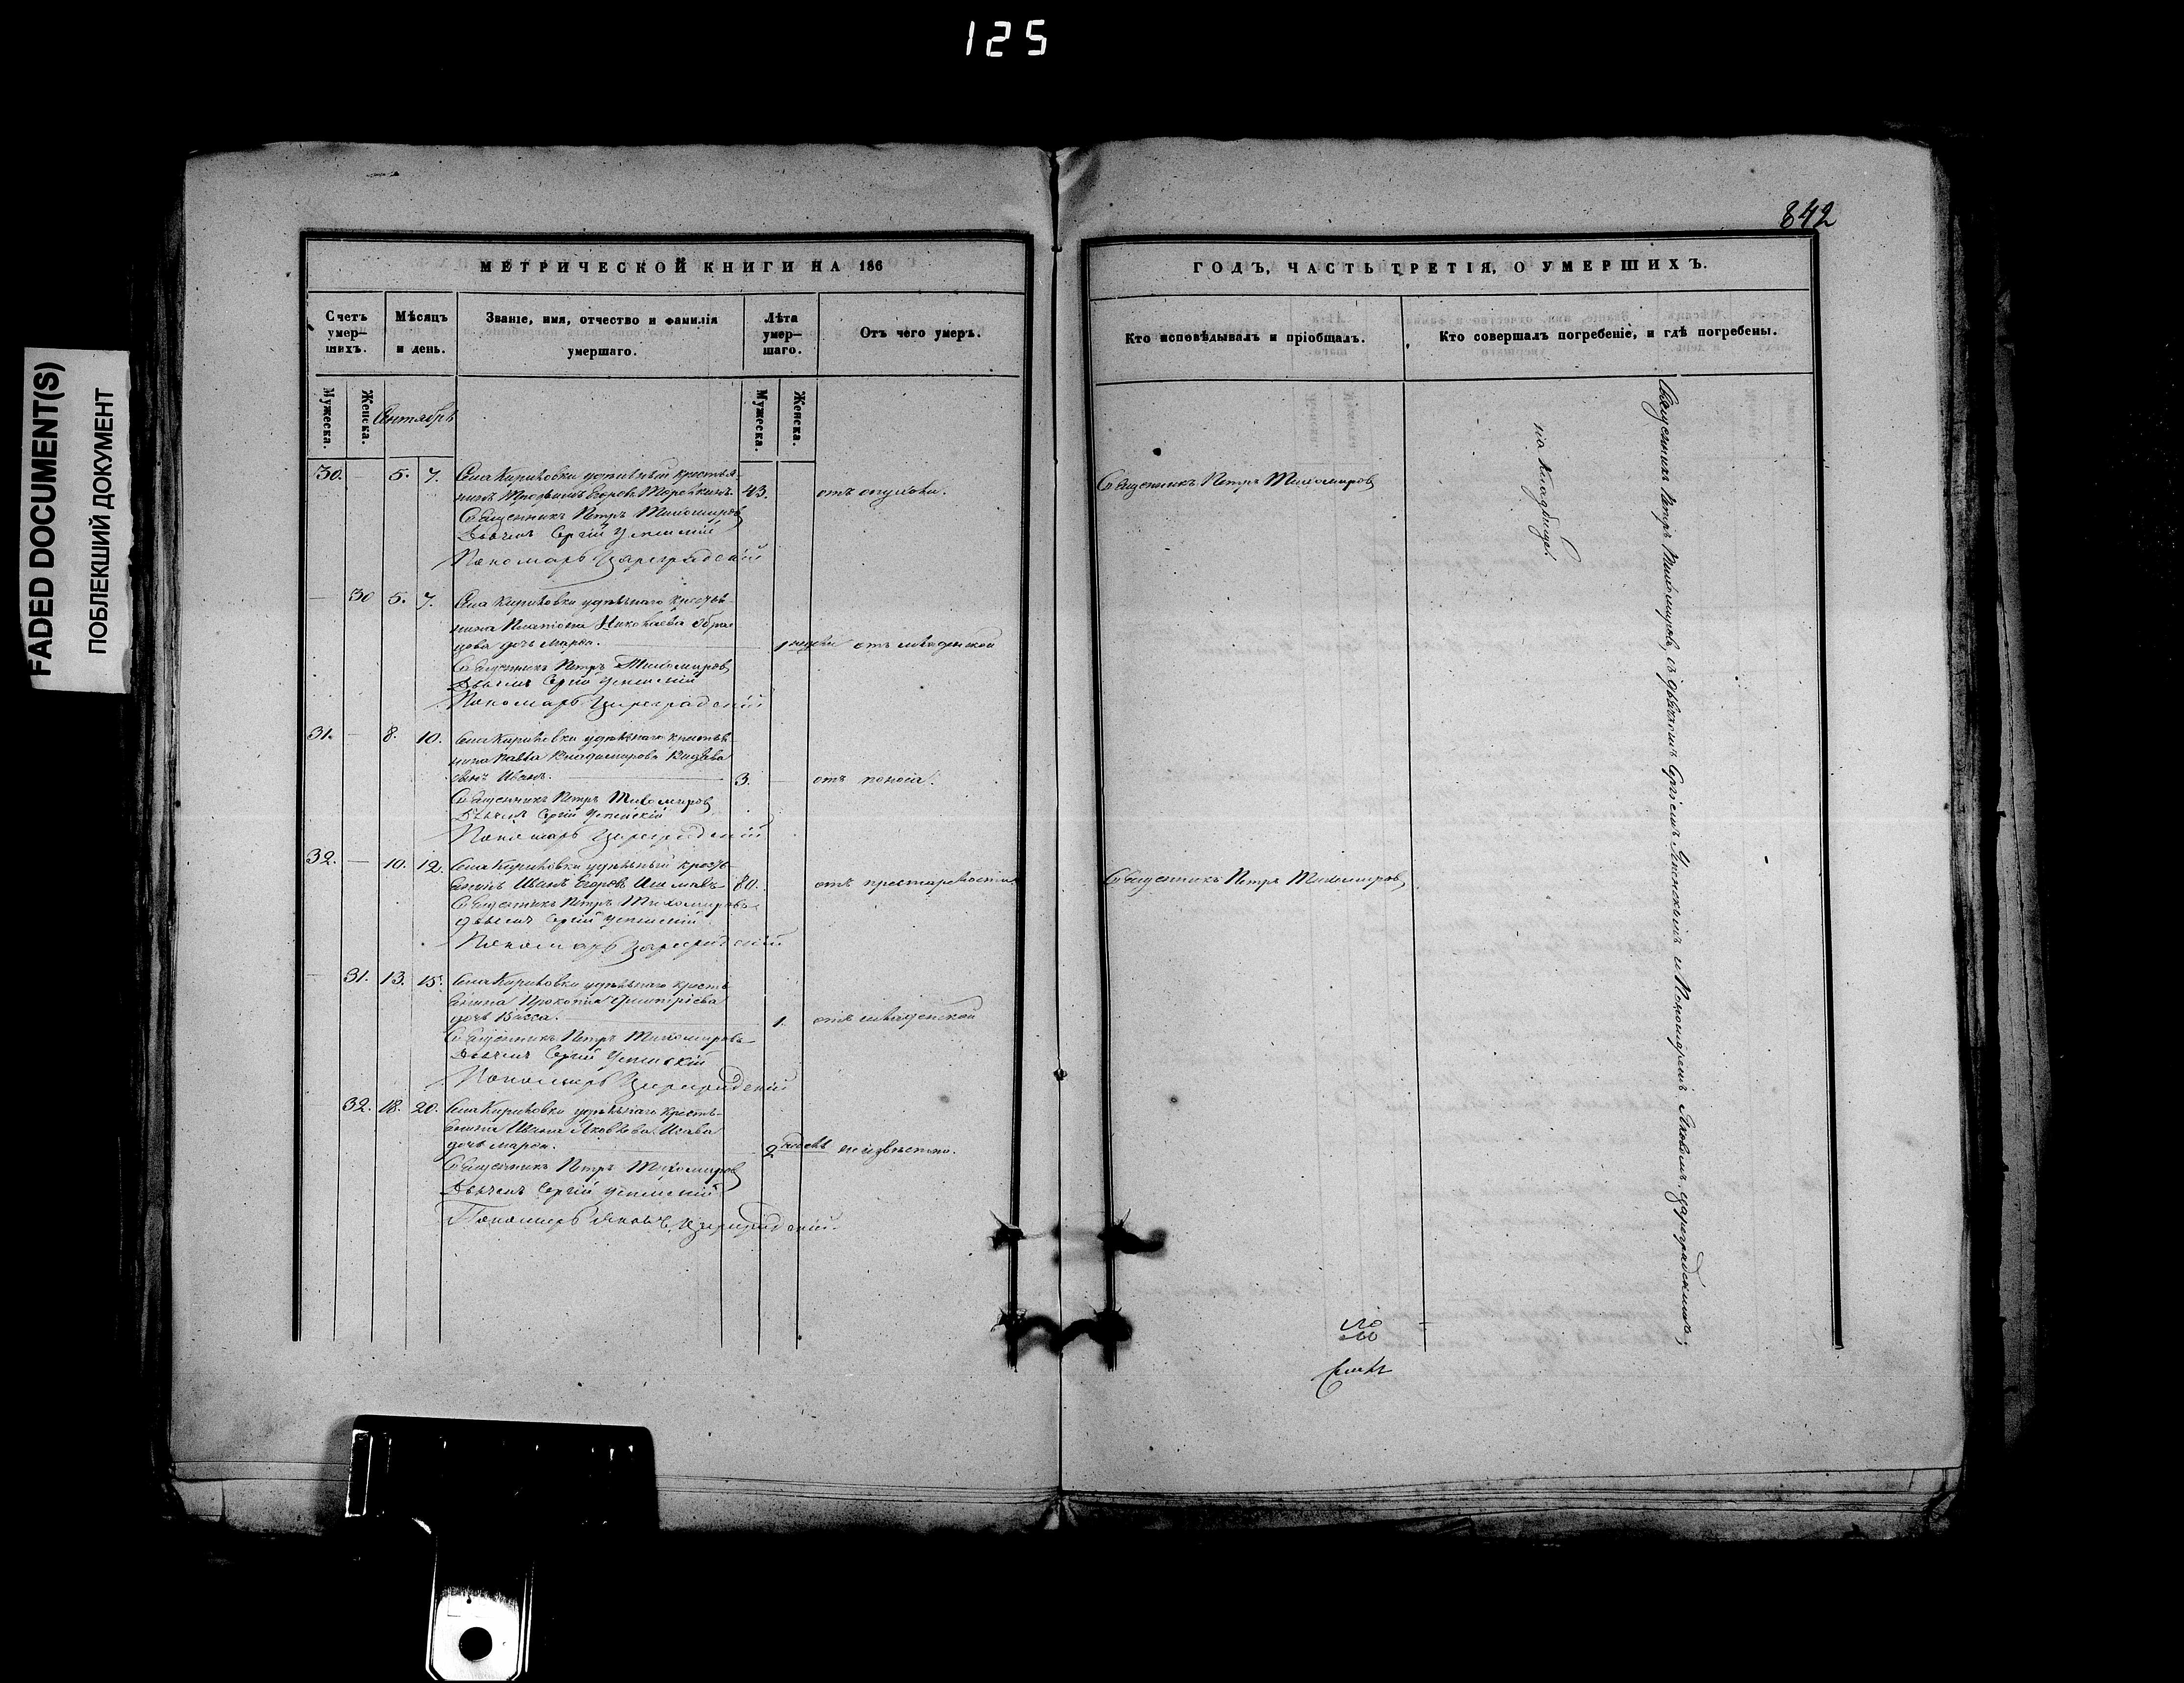 125
FADED DOCUMENT(S)
ПОБЛЕКШИЙ ДОКУМЕНТ
842
МЕТРИЧЕСКОЙ КНИГИ НА 186
ГОДЪ, ЧАСТЬ ТРЕТІЯ, О УМЕРШИХЪ.
Счетъ умер–шихъ.
Мѣсяцъ и день.
Званіе, имя, отчество и фамилія умершаго.
Лѣта умер–шаго.
Отъ чего умеръ.
Кто исповѣдывалъ и пріобщалъ.
Кто совершалъ погребеніе, и гдѣ погребены.
Мужеска.
Женска.
Сентябрь
Мужеска.
Женска.
30. — 5. 7. Села Кириловки удѣльный крестья-
нинъ Егоровъ 43. отъ опухоли. Священникъ Петръ Тихомировъ
Священникъ Петръ Тихомировъ
Дьячекъ Сергій Успенскій
Пономарь Цареградскій
— 30 5. 7. Села Кириловки удѣльнаго крестья-
нина Платона Николаева
дочь Марѳа. 1 недѣли отъ младенской
Священникъ Петръ Тихомировъ
Дьячекъ Сергій Успенскій
Пономарь Цареградскій
31. — 8. 10. Села Кириловки удѣльнаго крестья-
нина Павла Владимирова
сынъ Иванъ. 3. отъ поноса.
Священникъ Петръ Тихомировъ
Дьячекъ Сергій Успенскій
Пономарь Цареградскій
32. — 10. 12. Села Кириловки удѣльный кресть-
янинъ Иванъ Егоровъ 80. отъ престарелости Священникъ Петръ Тихомировъ
Священникъ Петръ Тихомировъ
дьячекъ Сергій Успенскій
Пономарь Цареградскій
— 31. 13. 15. Села Кириловки удѣльнаго кресть-
янина Прокопія Дмитріева
дочь Васса. 1. отъ младенской
Священникъ Петръ Тихомировъ
Дьячекъ Сергій Успенскій
Пономарь Цареградскій
32. 18. 20. Села Кириловки удѣльнаго кресть-
янина Ивана Яковлева
дочь Марѳа. 2 неизвѣстно.
Священникъ Петръ Тихомировъ
Дьячекъ Сергій Успенскій
Пономарь Яковъ Цареградскій.
на кладбищѣ.
Священникъ Петръ Тихомировъ, съ дьячкомъ Сергіемъ Успенскимъ и Пономаремъ Яковомъ Цареградскимъ;